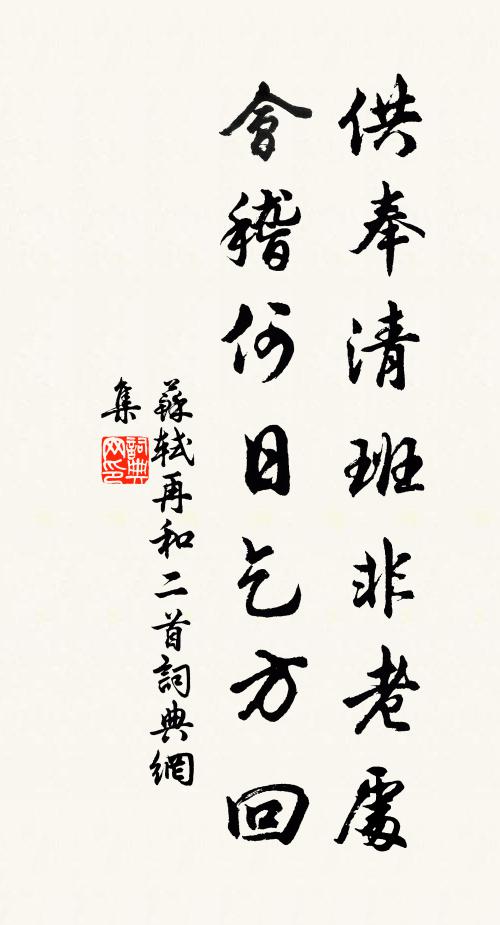 供奉清班非老處
會稽何日乞方回
蘇軾再和二首詞典網
集
詞典網印